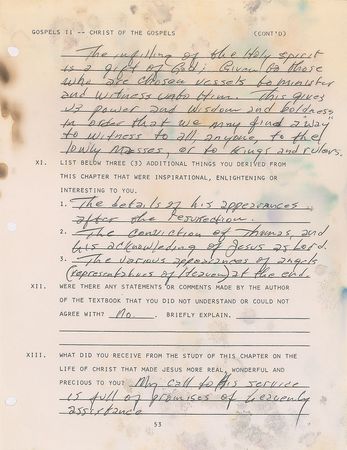 GOSPELS II -- CHRIST OF THE GOSPELS (CONT'D)
The infilling of the Holy Spirit
is a gift of God; Given to those
who are chosen vessels to minister
and witness unto Him. This gives
us power and wisdom and boldness,
in order that we may find a "way"
to witness to all anyone, to the
lowly masses, or to Kings and rulers.
XI. LIST BELOW THREE (3) ADDITIONAL THINGS YOU DERIVED FROM
THIS CHAPTER THAT WERE INSPIRATIONAL, ENLIGHTENING OR
INTERESTING TO YOU.
1. The details of his appearances
after the resurrection.
2. The conviction of Thomas, and
his acknowledging of Jesus as Lord.
3. The various appearances of angels
(representatives of Heaven) at the end.
XII. WERE THERE ANY STATEMENTS OR COMMENTS MADE BY THE AUTHOR
OF THE TEXTBOOK THAT YOU DID NOT UNDERSTAND OR COULD NOT
AGREE WITH? No. BRIEFLY EXPLAIN.
XIII. WHAT DID YOU RECEIVE FROM THE STUDY OF THIS CHAPTER ON THE
LIFE OF CHRIST THAT MADE JESUS MORE REAL, WONDERFUL AND
PRECIOUS TO YOU? My call to his service
is full of promises of heavenly
assistance
53